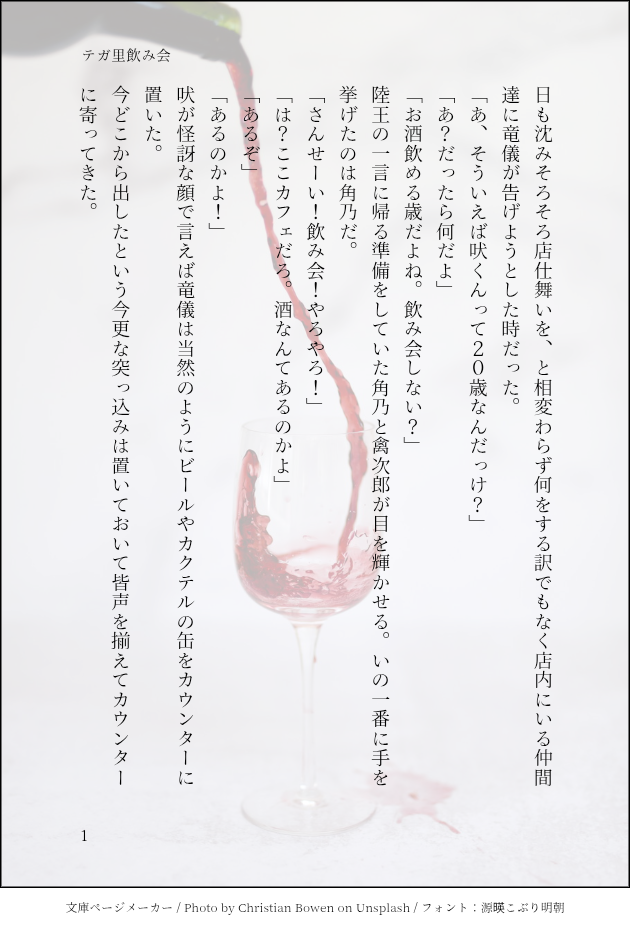 テガ里飲み会
日も沈みそろそろ店仕舞いを、と相変わらず何をする訳でもなく店内にいる仲間
達に竜儀が告げようとした時だった。
「あ、そういえば吠くんって２０歳なんだっけ？」
「あ？だったら何だよ」
「お酒飲める歳だよね。飲み会しない？」
陸王の一言に帰る準備をしていた角乃と禽次郎が目を輝かせる。いの一番に手を
挙げたのは角乃だ。
「さんせーい！飲み会！やろやろ！」
「は？ここカフェだろ。酒なんてあるのかよ」
「あるぞ」
「あるのかよ！」
吠が怪訝な顔で言えば竜儀は当然のようにビールやカクテルの缶をカウンターに
置いた。
今どこから出したという今更な突っ込みは置いておいて皆声を揃えてカウンター
に寄ってきた。
1
文庫ページメーカー / Photo by Christian Bowen on Unsplash / フォント：源暎こぶり明朝